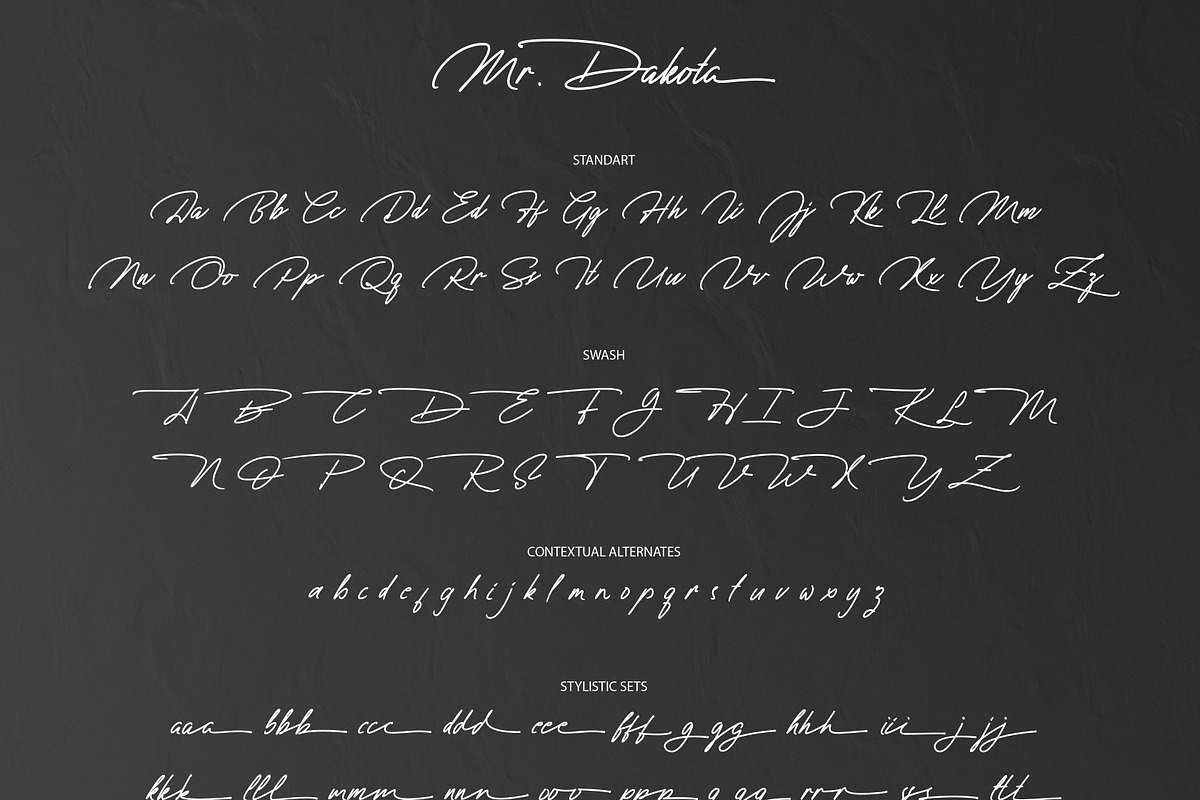 Mr. Dakota
STANDART
Aa Bb Cc Dd Ed Ff Gg Hh Ii Jj Kk Ll Mm
Nn Oo Pp Qq Rr Ss Tt Uu Vv Ww Xx Yy Zz
SWASH
A B C D E F G H I J K L M
N O P Q R S T U V W X Y Z
CONTEXTUAL ALTERNATES
a b c d e f g h i j k l m n o p q r s t u v w x y z
STYLISTIC SETS
aaa bbb ccc ddd eee fff g gg hhh iii j jj
kkk lll mmm nnn ooo ppp q qq rrr ss ttt